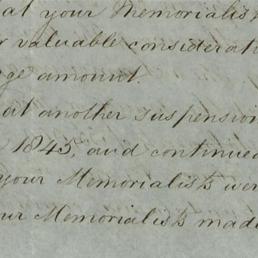 at your Memorialists
valuable considerat
ge amount.
at another suspension
1845, and continued
your Memorialists wer
ur Memorialists mad